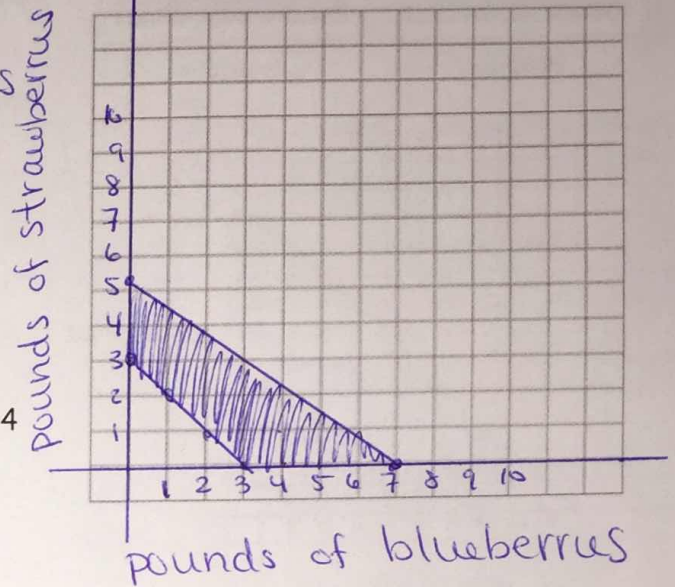 pounds of strawberrus
10
9
8
7
6
5
4
3
2
1
4
1 2 3 4 5 6 7 8 9 10
pounds of blueberrus